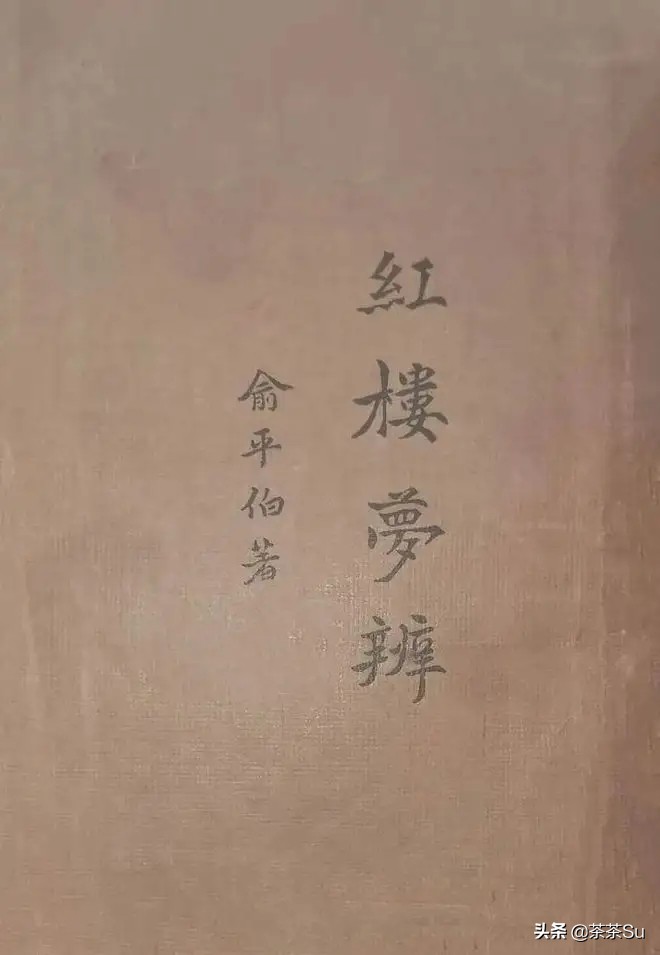 紅樓夢辨
俞平伯著
头条 @茶茶Su